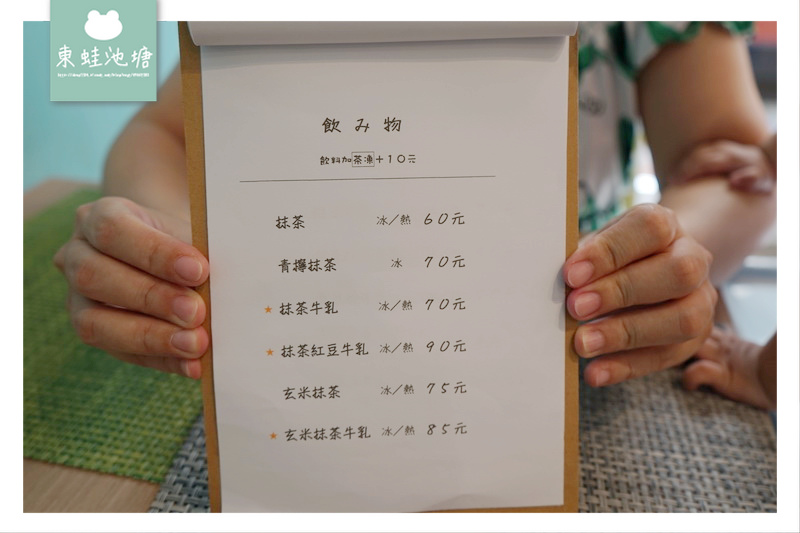 東蛙池塘
飲み物
飲料加茶凍＋10元
抹茶 冰／熱 60元
青檸抹茶 冰 70元
★ 抹茶牛乳 冰／熱 70元
★ 抹茶紅豆牛乳 冰／熱 90元
玄米抹茶 冰／熱 75元
★ 玄米抹茶牛乳 冰／熱 85元